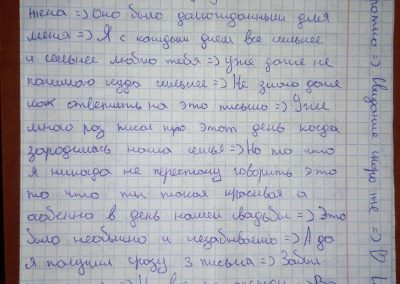 жена =) Оно было долгожданным для
меня =) Я с каждым днем все сильнее
и сильнее люблю тебя =) уже даже не
понимаю куда сильнее =) Не знаю даже
как ответить на это письмо =) Уже
много раз писал про этот день когда
зародилась наша семья =) Но то что
я никогда не перестану говорить это
то что ты такая красивая а
особенно в день нашей свадьбы =) Это
было необычно и незабываемо =) А да
я получил сразу 3 письма =) Забыл
Свидание скоро же =)